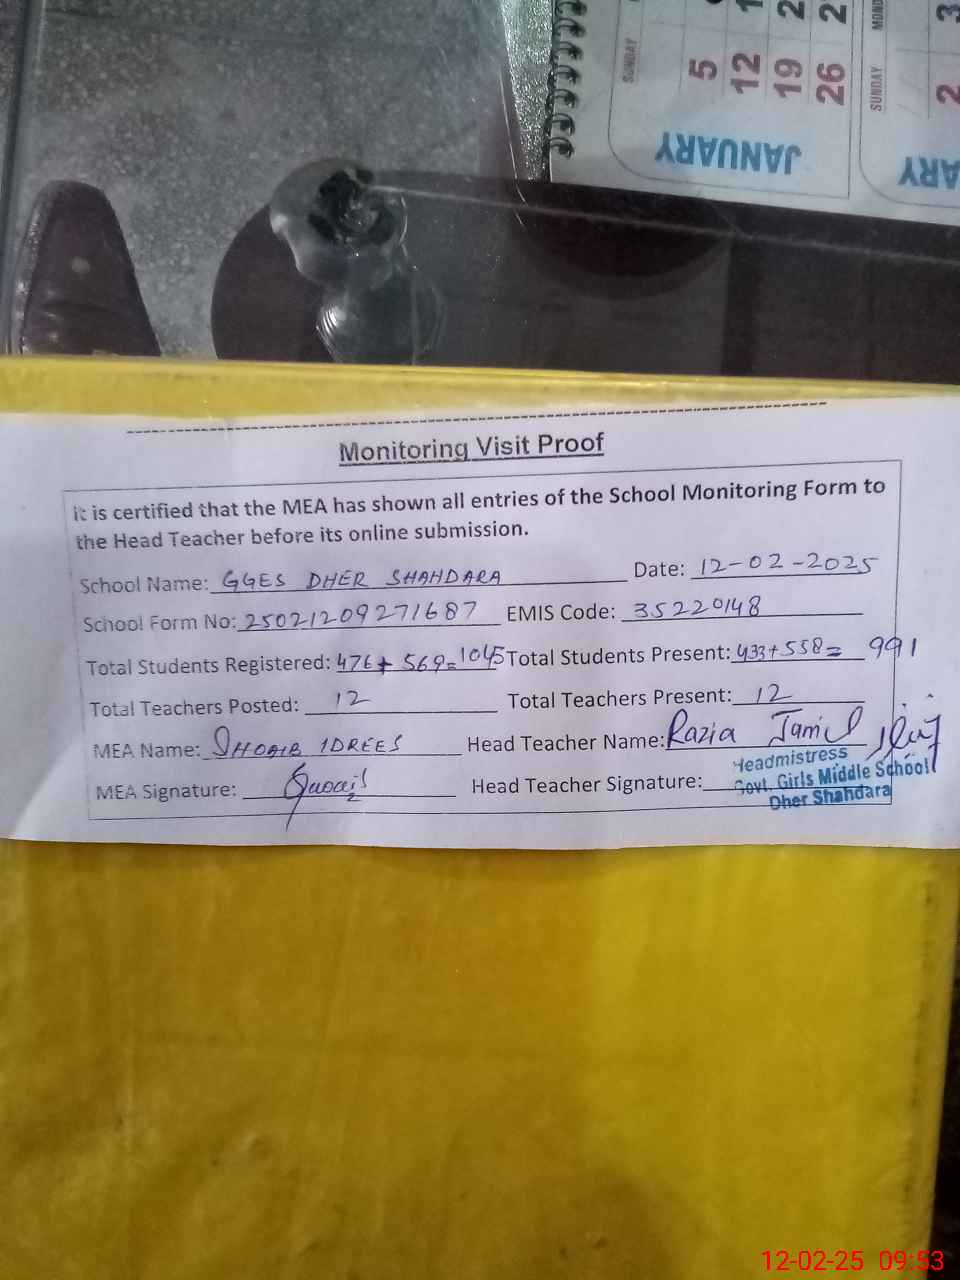 SUNDAY 5 12 19 26
JANUARY
SUNDAY 2
MOND
ARY
Monitoring Visit Proof
it is certified that the MEA has shown all entries of the School Monitoring Form to
the Head Teacher before its online submission.
School Name: GGES DHER SHAHDARA Date: 12-02-2025
School Form No: 25021209271687 EMIS Code: 35220148
Total Students Registered: 476+569=1045 Total Students Present: 433+558= 991
Total Teachers Posted: 12 Total Teachers Present: 12
MEA Name: SHOAIB IDREES Head Teacher Name: Razia Jamil
MEA Signature: Head Teacher Signature:
Headmistress
Govt. Girls Middle School
Dher Shahdara
12-02-25 09:53